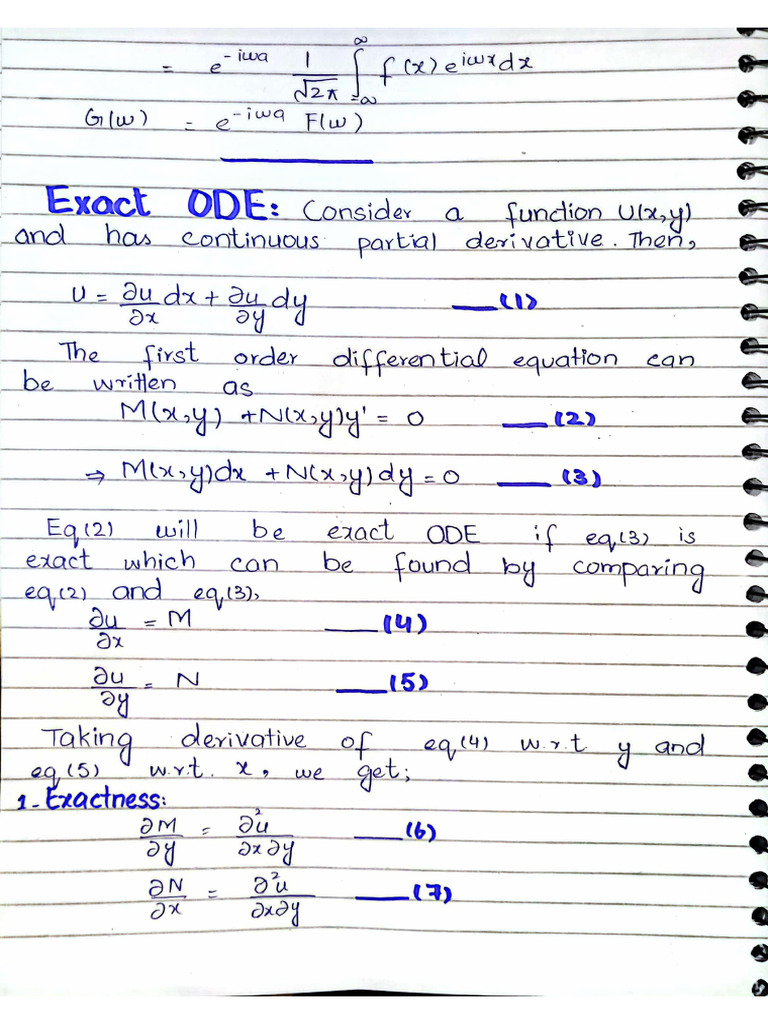 = e^{-iwa} 1/√2π ∫_{-∞}^{∞} f(x) e^{iwx} dx
G(w) = e^{-iwa} F(w)
Exact ODE: Consider a function U(x,y)
and has continuous partial derivative. Then,
U = ∂u/∂x dx + ∂u/∂y dy —(1)
The first order differential equation can
be written as
M(x,y) + N(x,y)y' = 0 —(2)
⇒ M(x,y)dx + N(x,y)dy = 0 —(3)
Eq(2) will be exact ODE if eq(3) is
exact which can be found by comparing
eq(2) and eq(3),
∂u/∂x = M —(4)
∂u/∂y = N —(5)
Taking derivative of eq(4) w.r.t y and
eq(5) w.r.t. x, we get;
1- Exactness:
∂M/∂y = ∂²u/∂x∂y —(6)
∂N/∂x = ∂²u/∂x∂y —(7)